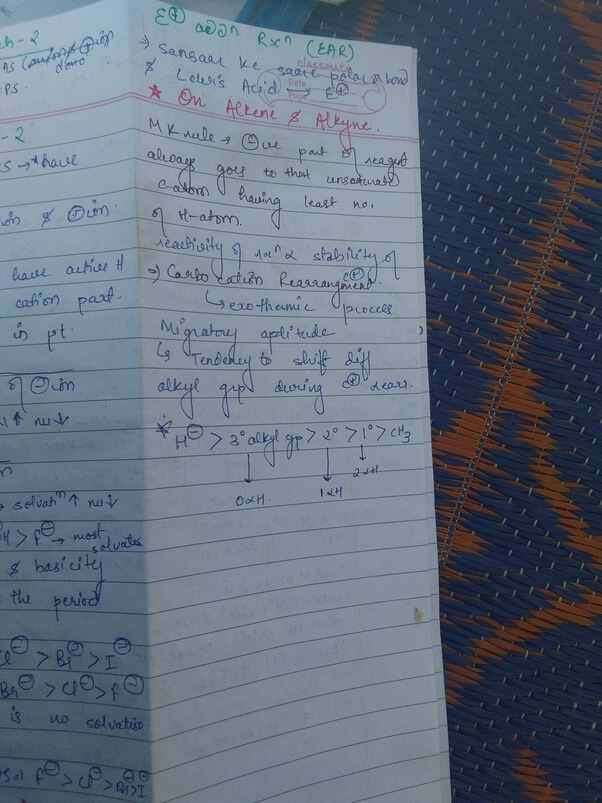 ch-2
AS
PS.
-2
PS → *have
ion & ⊖ion.
have active H
cation part.
in pt.
of ⊖ion
↑ nu↓
→ solvatⁿ ↑ nu↓
OH > F⊖ → most
solvates
& basicity
the period
Cl⊖ > Br⊖ > I⊖
Br⊖ > Cl⊖ > F⊖
is no solvatio
F⊖ > Cl⊖ > Br⊖ > I⊖
E⊕ addⁿ Rxⁿ (EAR)
→ Sansaar ke saare polar π bond
classmate
& Lewis Acid → E⊕
Date
Page
* On Alkene & Alkyne.
MK rule → ⊖ve part of reagent
always goes to that unsaturated
C-atom having least no.
of H-atom.
reactivity of rxⁿ ∝ stability of
C⊕.
⇒ Carbocation Rearrangment
↳ exothermic process
Migratory aptitude
↳ Tendency to shift diff
alkyl grp during ⊕ rearr.
* H⊖ > 3° alkyl gp > 2° > 1° > CH3
0αH. 1αH 2αH